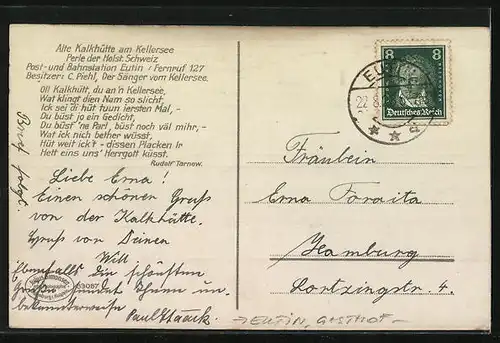 Alte Kalkhütte am Kellersee
Perle der Holst. Schweiz
Post- und Bahnstation Eutin / Fernruf 127
Besitzer: C. Piehl, Der Sänger vom Kellersee.
Oll Kalkhütt, du an'n Kellersee,
Wat klingt dien Nam so slicht,
Ick sei di hüt tuum iersten Mal, –
Du büst jo ein Gedicht,
Du büst 'ne Parl, büst noch väl mihr, –
Wat ick nich bether wüsst,
Hüt weit ick't – dissen Placken Ir
Hett eins uns' Herrgott küsst.
Rudolf Tarnow.
Brief folgt.
Liebe Erna!
Einen schönen Gruß
von der Kalkhütte.
Gruß von Deinen
Willi
Ebenfalls die schönsten
Grüße sendet Ihnen un-
bekannterweise
Paul Staack.
8 8
Deutsches Reich
EUTIN
22.8.
Fräulein
Erna Foraita
Hamburg
Lortzingstr. 4.
→ EUTIN, GASTHOF –